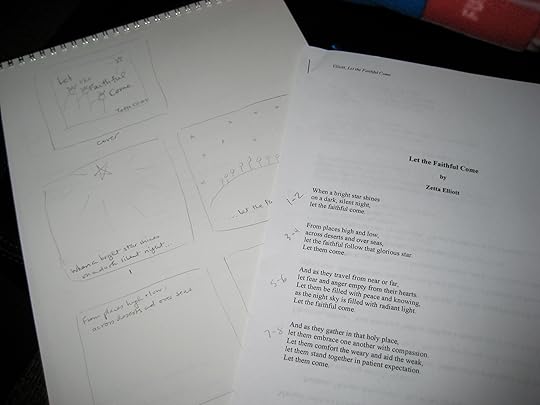 Let
the
Faithful
Come
Zetta Elliott
cover
When a bright star shines
on a dark silent night...
1
...let the fa
From places high + low,
across deserts and over seas
Elliott, Let the Faithful Come
Let the Faithful Come
by
Zetta Elliott
1-2
When a bright star shines
on a dark, silent night,
let the faithful come.
3-4
From places high and low,
across deserts and over seas,
let the faithful follow that glorious star.
Let them come.
5-6
And as they travel from near or far,
let fear and anger empty from their hearts.
Let them be filled with peace and knowing,
as the night sky is filled with radiant light.
Let the faithful come.
7-8
And as they gather in that holy place,
let them embrace one another with compassion.
Let them comfort the weary and aid the weak,
let them stand together in patient expectation.
Let them come.